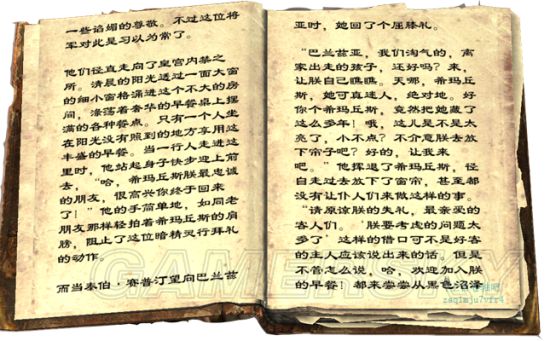 一些谄媚的尊敬。不过这位将
军对此是习以为常了。
他们径直走向了皇宫内禁之
所。清晨的阳光透过一面大窗
的细小窗格漏进这个不大的房
间，涤荡着奢华的早餐桌上摆
满的各种餐点。只有一个人坐
在阳光没有照到的地方享用这
丰盛的早餐。当一行人走进这
里时，他站起身子快步迎上前
去，“哈，希玛丘斯朕最忠诚
的朋友，很高兴你终于回来
了！”他的手简单地，如同老
朋友那样轻拍着希玛丘斯的肩
膀，阻止了这位暗精灵行拜礼
的动作。
而当泰伯·赛普汀望向巴兰兹
亚时，她回了个屈膝礼。
“巴兰兹亚，我们淘气的，离
家出走的孩子，还好吗？来，
让朕自己瞧瞧。天哪，希玛丘
斯，她可真迷人，绝对地。好
你个希玛丘斯，竟然把她藏了
这么多年！哦，这儿是不是太
亮了，小不点？不介意朕去放
下帘子吧？好的，让我来
吧。”他挥退了希玛丘斯，径
自走过去放下了窗帘，甚至都
没有让仆人们来做这样的事。
“请原谅朕的失礼，最亲爱的
客人们。‘朕要考虑的问题太
多了’这样的借口可不是好客
的主人应该说出来的话。但是
不管怎么说，哈，欢迎加入朕
的早餐！都来尝尝从黑色沼泽
GAMERSKY
zaqimju7vfr4